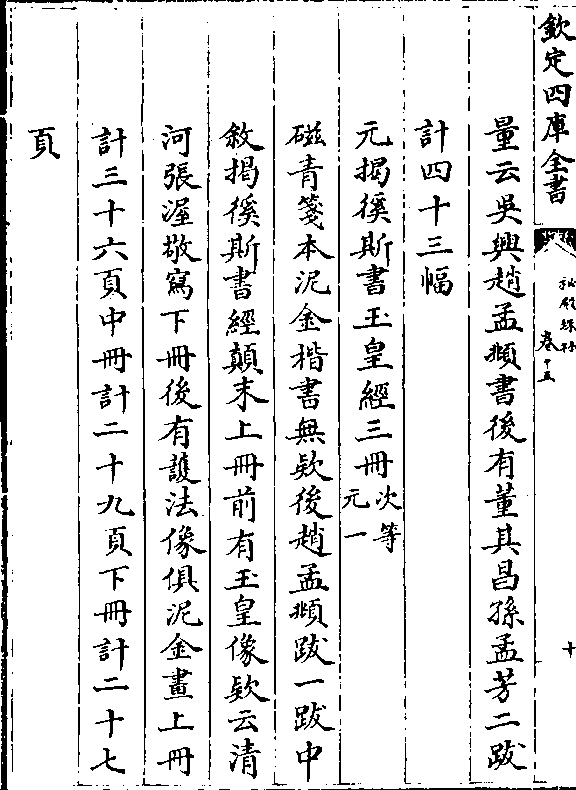 欽定四庫全書
秘殿珠林
卷十五
十
量云吳興趙孟頫書後有董其昌孫孟芳二跋
計四十三幅
元揭徯斯書玉皇經三冊次等元一
磁青箋本泥金楷書無欵後趙孟頫跋一跋中
敘揭徯斯書經顛末上冊前有玉皇像欵云清
河張渥敬寫下冊後有護法像俱泥金畫上冊
計三十六頁中冊計二十九頁下冊計二十七
頁